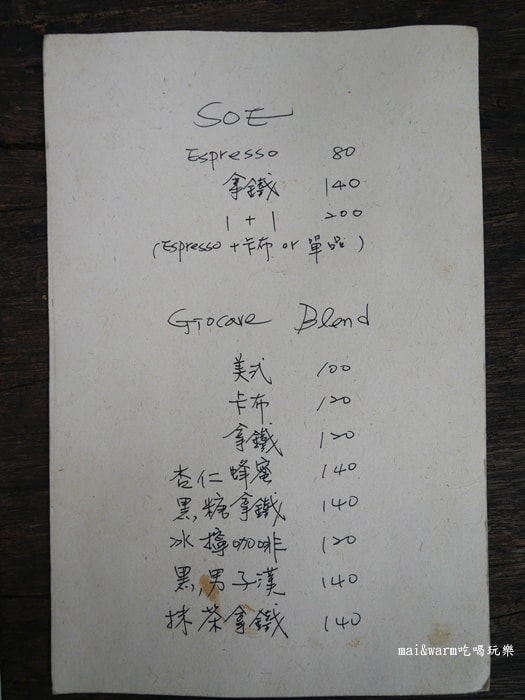 SOE
Espresso 80
拿鐵 140
1+1 200
(Espresso + 卡布 or 單品)
Giocare Blend
美式 100
卡布 120
拿鐵 120
杏仁蜂蜜 140
黑糖拿鐵 140
冰擰咖啡 120
黑,男子漢 140
抹茶拿鐵 140
mai&warm吃喝玩樂